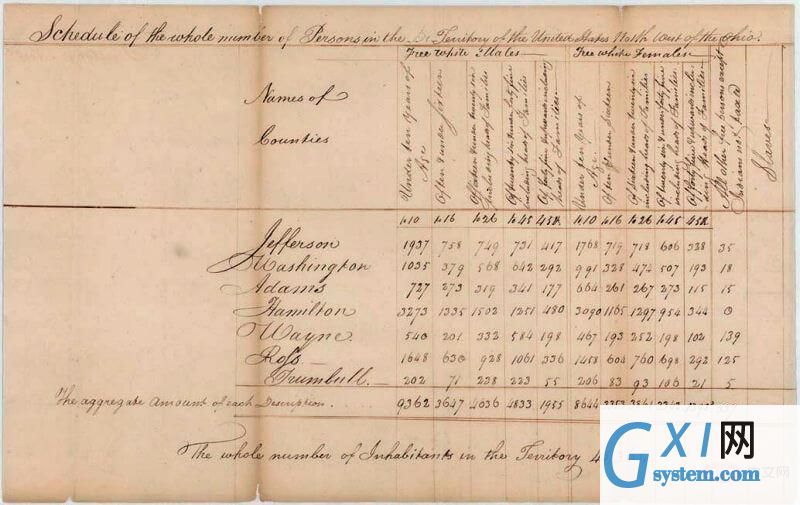 Schedule of the whole number of Persons in the Territory of the United States North West of the Ohio.
Free white Males Free white Females
Names of
Counties
Under ten Years of Age
Of ten & under sixteen
Of sixteen & under twenty six including heads of Families
Of twenty six & under forty five including heads of Families
Of forty five & upwards including heads of Families
Under ten Years of Age
Of ten & under Sixteen
Of Sixteen & under twenty six including heads of Families
Of twenty six & under forty five including heads of Families
Of forty five & upwards including heads of Families
All other free persons except Indians not taxed
Slaves
to 10 to 16 to 26 to 45 45 to 10 to 16 to 26 to 45 45
Jefferson 1937 758 749 731 417 1768 719 718 606 328 35
Washington 1035 379 568 642 292 991 328 474 507 193 18
Adams 727 273 319 341 177 664 261 267 273 115 15
Hamilton 3273 1335 1502 1251 480 3090 1165 1297 954 344 0
Wayne. 540 201 332 584 198 467 193 252 198 102 139
Ross 1648 630 928 1061 336 1458 604 760 698 292 125
Trumbull. 202 71 238 223 55 206 83 93 106 21 5
The aggregate amount of each Description 9362 3647 4636 4833 1955 8644
The whole number of Inhabitants in the Territory 4
GXI网
system.com